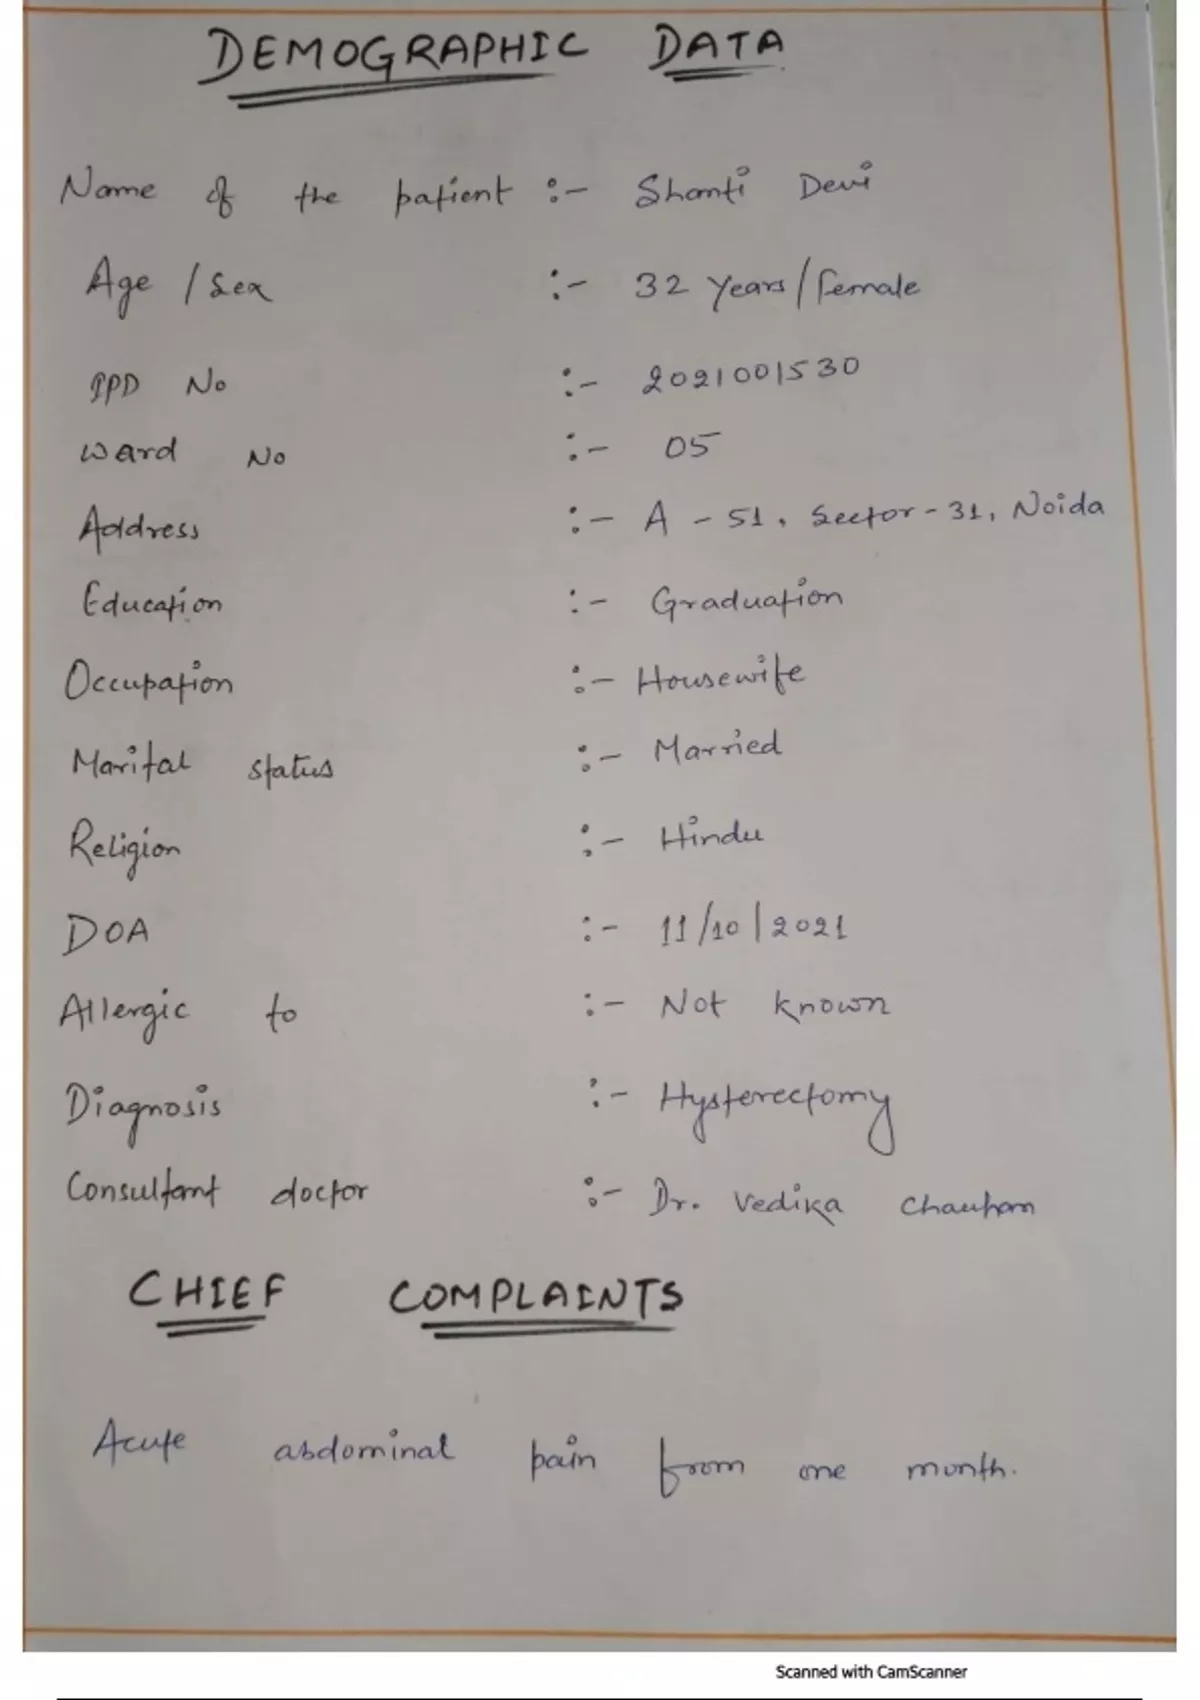 DEMOGRAPHIC DATA
Name of the patient :- Shanti Devi
Age / Sex :- 32 Years / Female
IPD No :- 2021001530
Ward No :- 05
Address :- A - 51, Sector - 31, Noida
Education :- Graduation
Occupation :- Housewife
Marital status :- Married
Religion :- Hindu
DOA :- 11/10/2021
Allergic to :- Not known
Diagnosis :- Hysterectomy
Consultant doctor :- Dr. Vedika Chauhan
CHIEF COMPLAINTS
Acute abdominal pain from one month.
Scanned with CamScanner